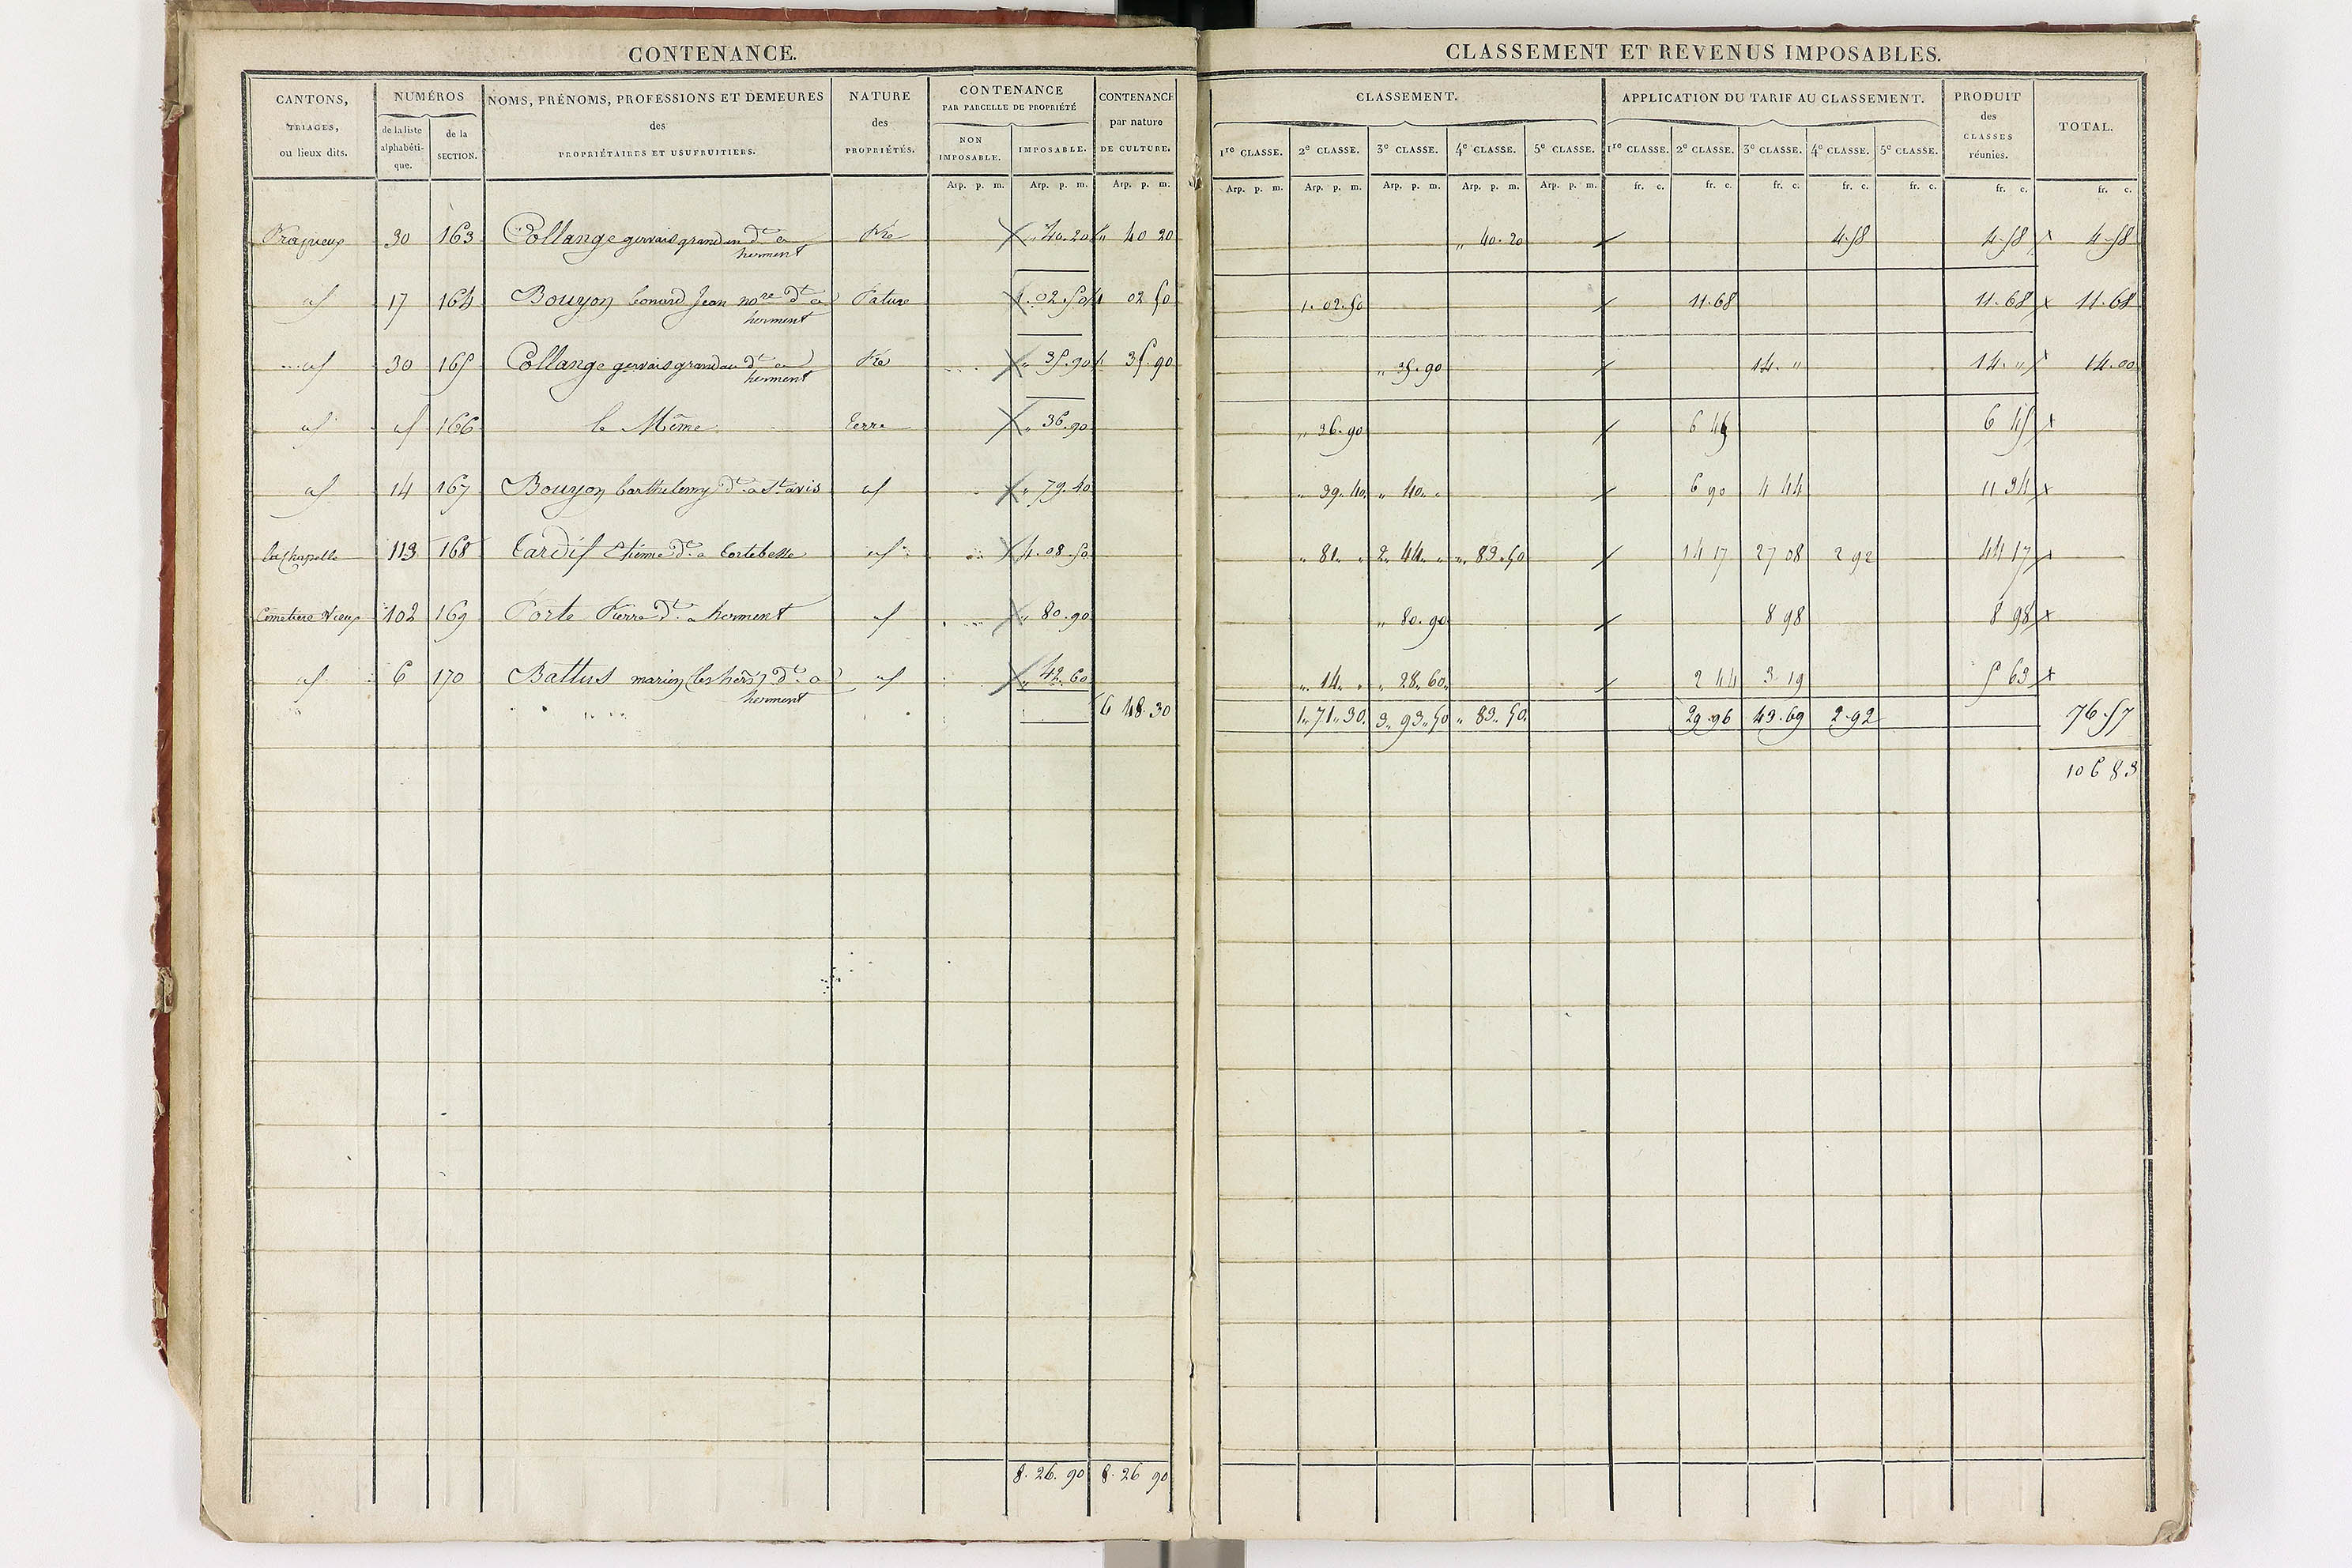 CONTENANCE.
CANTONS, TRIAGES, ou lieux dits. | NUMÉROS de la liste alphabétique. | de la SECTION. | NOMS, PRÉNOMS, PROFESSIONS ET DEMEURES des PROPRIÉTAIRES ET USUFRUITIERS. | NATURE des PROPRIÉTÉS. | CONTENANCE PAR PARCELLE DE PROPRIÉTÉ NON IMPOSABLE. | IMPOSABLE. | CONTENANCE par nature DE CULTURE.
Arp. p. m. | Arp. p. m. | Arp. p. m.
30 | 163 | Collange gervais grand dt a herment | Pré | „ 40.20 | „ 40 20
id | 17 | 164 | Bouyon Leonard Jean nore dt a herment | Pature | 1.02.50 | 1 02 50
id | 30 | 165 | Collange gervais grand dt a herment | Pré | „ 35.90 | „ 35.90
id | id | 166 | le Même | terre | „ 36.90
id | 14 | 167 | Bouyon barthelemy dt a St avis | id | „ 79.40
la Chapelle | 113 | 168 | tardif Etienne dt a tortebesse | id | 4.08.50
Cimetiere Vieux | 102 | 169 | Porte Pierre dt a herment | id | „ 80.90
id | 6 | 170 | Battus marien (les hers) dt a herment | id | „ 42.60
6 48.30
8.26.90 | 8.26 90
CLASSEMENT ET REVENUS IMPOSABLES.
CLASSEMENT. | APPLICATION DU TARIF AU CLASSEMENT. | PRODUIT des CLASSES réunies. | TOTAL.
1re CLASSE. | 2e CLASSE. | 3e CLASSE. | 4e CLASSE. | 5e CLASSE. | 1re CLASSE. | 2e CLASSE. | 3e CLASSE. | 4e CLASSE. | 5e CLASSE.
Arp. p. m. | Arp. p. m. | Arp. p. m. | Arp. p. m. | Arp. p. m. | fr. c. | fr. c. | fr. c. | fr. c. | fr. c. | fr. c. | fr. c.
„ 40.20 | 4.58 | 4.58 | 4.58
1.02.50 | 11.68 | 11.68 | 11.68
„ 35.90 | 14. „ | 14. „ | 14.00
„ 36.90 | 6 45 | 6 45
„ 39.40 | „ 40. „ | 6 90 | 4 44 | 11 34
„ 81. „ | 2. 44. „ | „ 83.50 | 14 17 | 27 08 | 2 92 | 44 17
„ 80.90 | 8 98 | 8 98
„ 14. „ | „ 28.60 | 2 44 | 3.19 | 5 63
1.71.30 | 3.93.50 | „ 83.50 | 29.96 | 43.69 | 2.92 | 76.57
106 83